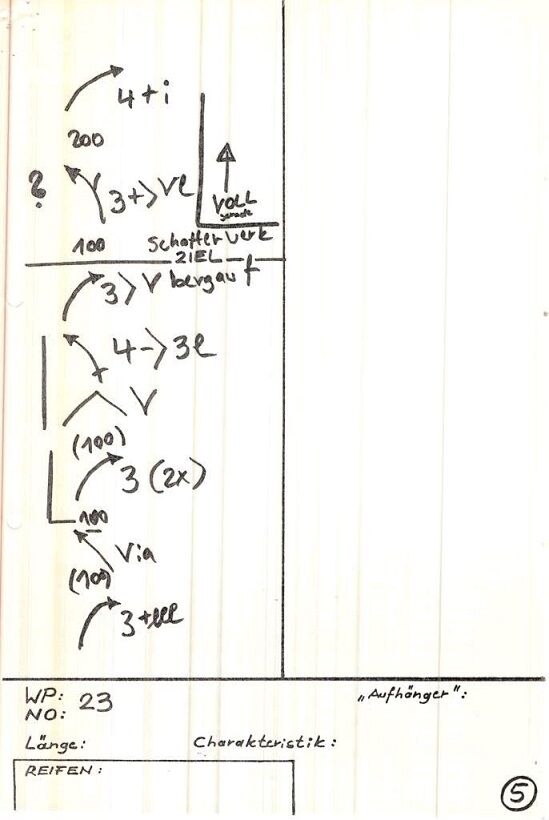 4+i
200
? 3+> Vl
VOLL
gerade
100
Schotterwerk
ZIEL
3> V bergauf
4->3l
V
(100)
3 (2x)
100
Via
(100)
3+lll
WP: 23
NO:
„Aufhänger":
Länge: Charakteristik:
REIFEN:
5